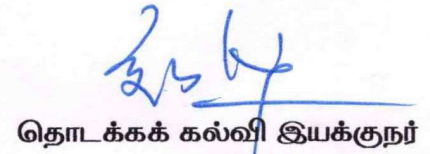 தொடக்கக் கல்வி இயக்குநர்